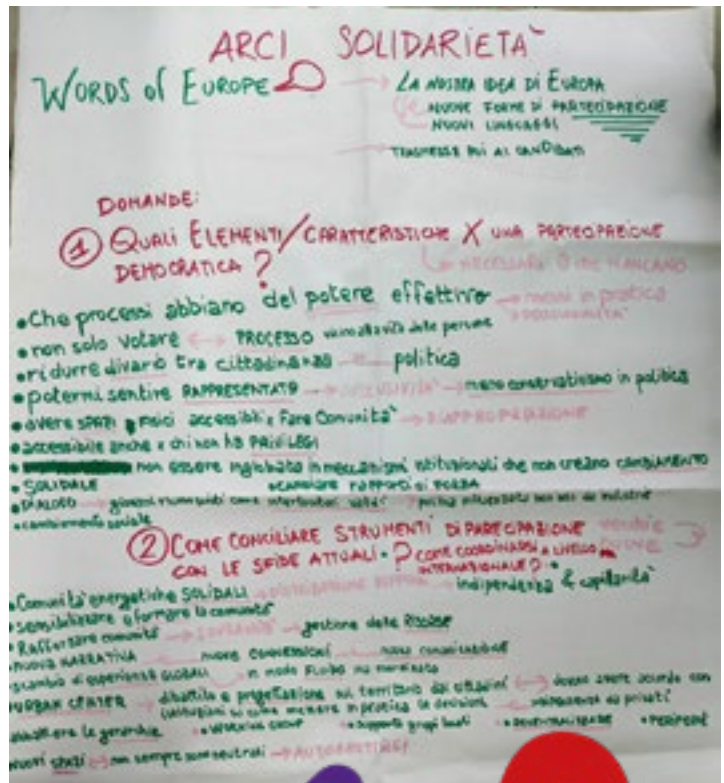 ARCI SOLIDARIETA`
WORDS of EUROPE → LA NOSTRA IDEA DI EUROPA
NUOVE FORME DI PARTECIPAZIONE
NUOVI LINGUAGGI
TRASMESSE POI AI CANDIDATI
DOMANDE:
① QUALI ELEMENTI/CARATTERISTICHE X UNA PARTECIPAZIONE
DEMOCRATICA? NECESSARI O CHE MANCANO
• Che processi abbiano del potere effettivo → messi in pratica
• non solo votare ↔ PROCESSO delle persone
• ridurre divario tra cittadinanza politica
• potermi sentire RAPPRESENTATO → → meno conservativismo in politica
• avere SPAZI fisici accessibili x Fare Comunita` → RIAPPROPRIAZIONE
• accessibile anche x chi non ha PRIVILEGI
• non essere inglobato in meccanismi istituzionali che non creano CAMBIAMENTO
• SOLIDALE • CAMBIARE RAPPORTI DI FORZA
• DIALOGO → giovani riconosciuti come interlocutori validi → politica influenzata non solo da industrie
• cambiamento sociale
② COME CONCILIARE STRUMENTI DI PARTECIPAZIONE
CON LE SFIDE ATTUALI • ? COME COORDINARSI A LIVELLO
INTERNAZIONALE?
• Comunita` energetiche SOLIDALI → → indipendenza & capillarita`
• sensibilizzare e formare la comunita`
• Rafforzare comunita` → → gestione delle RISORSE
• NUOVA NARRATIVA nuove CONNESSIONI nuova comunicazione
• scambio di esperienze GLOBALI in modo FLUIDO
• URBAN CENTER → dibattito e progettazione sul territorio dai cittadini
istituzioni su come mettere in pratica le decisioni
le gerarchie • WORKING GROUP • Supporto gruppi locali • DECENTRALIZZARE • PERIFERIE
• NUOVI SPAZI ↔ non sempre sono neutrali → AUTOGESTIRE!